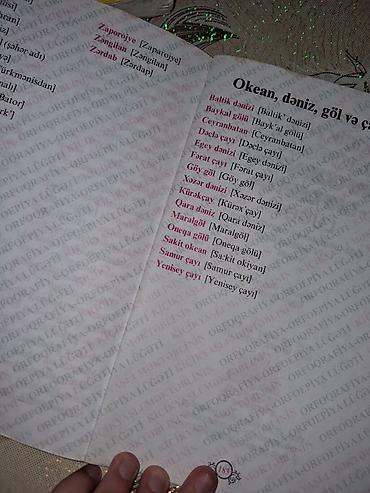 (şəhər adı)
Zaporojye [Zaparojye]
Zəngilan [Zəngilan]
Zərdab [Zərdap]
Okean, dəniz, göl və
Baltik dənizi [Baltik' dənizi]
Baykal gölü [Bayk'al gölü]
Ceyranbatan [Ceyranbatan]
Dəclə çayı [Dəclə çayı]
Egey dənizi [Egey dənizi]
Fərat çayı [Fərat çayı]
Göy göl [Göy göl]
Xəzər dənizi [Xəzər dənizi]
Kürəkçay [Kürəx'çay]
Qara dəniz [Qara dəniz]
Maralgöl [Maralgöl]
Oneqa gölü [Oneqa gölü]
Sakit okean [Sa:kit okiyan]
Samur çayı [Samur çayı]
Yenisey çayı [Yenisey çayı]
183